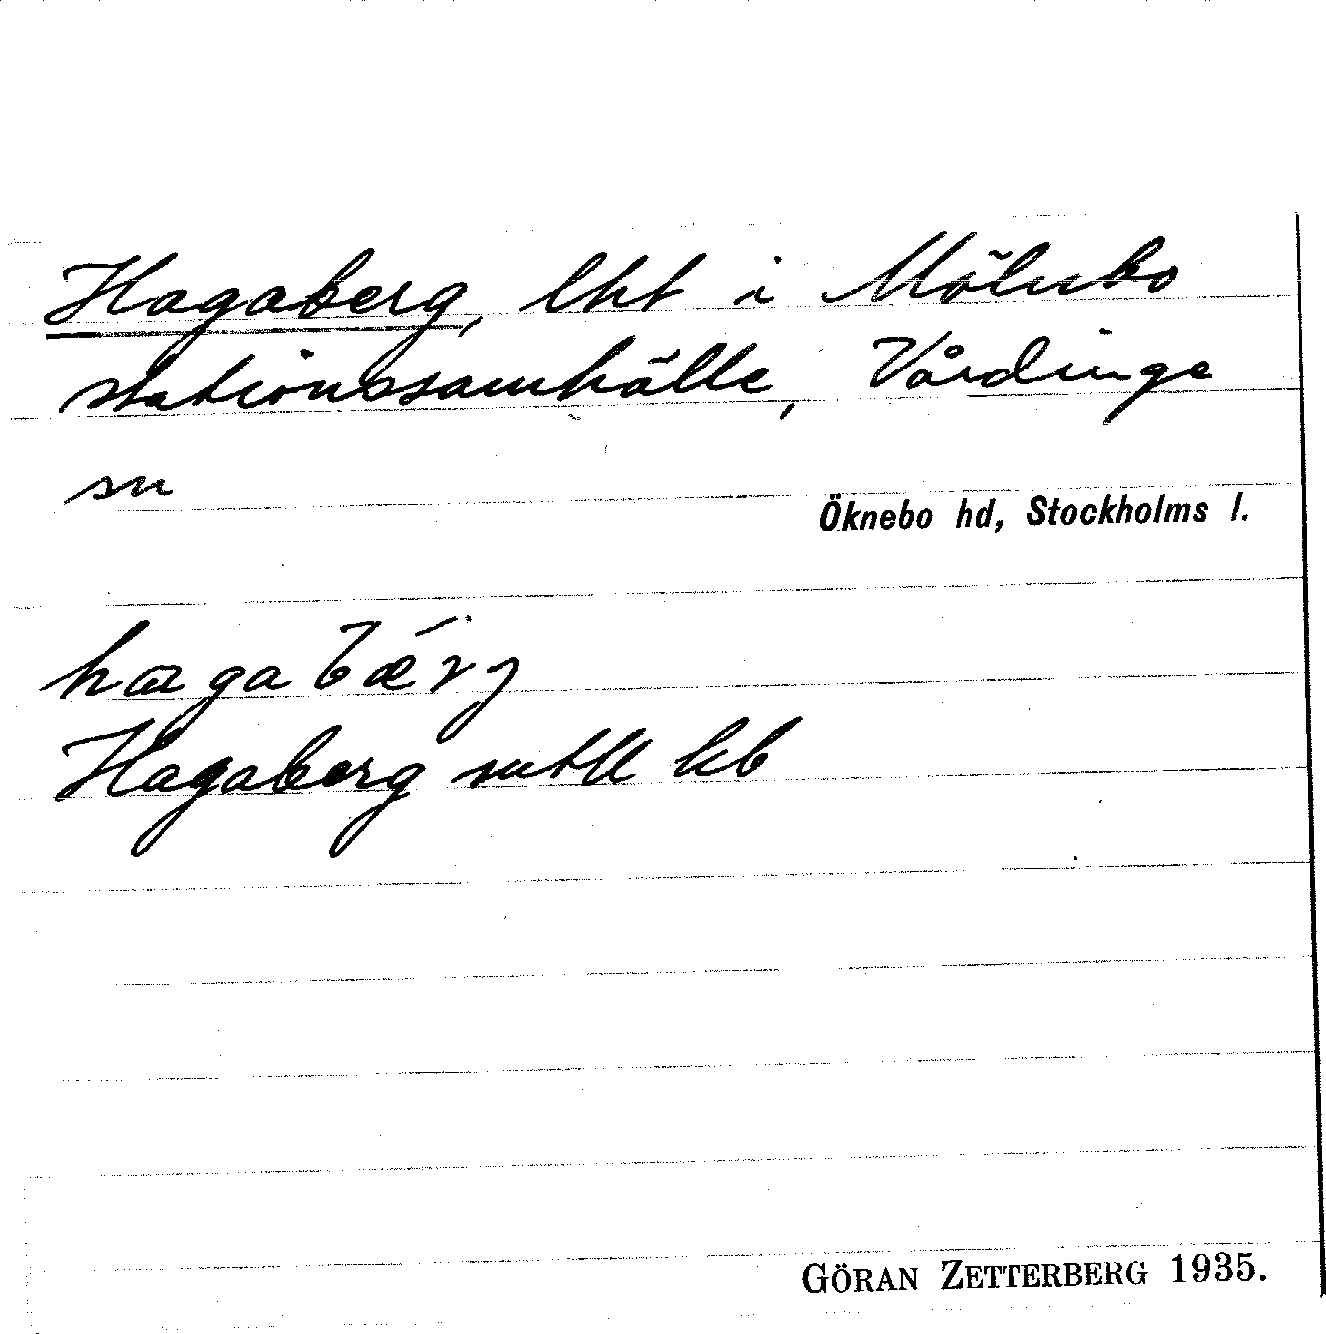 Hagaberg, lht i Mölnbo
stationssamhälle, Vårdinge
sn
Öknebo hd, Stockholms l.
hagabǽrj
Hagaberg mtll kb
GÖRAN ZETTERBERG 1935.